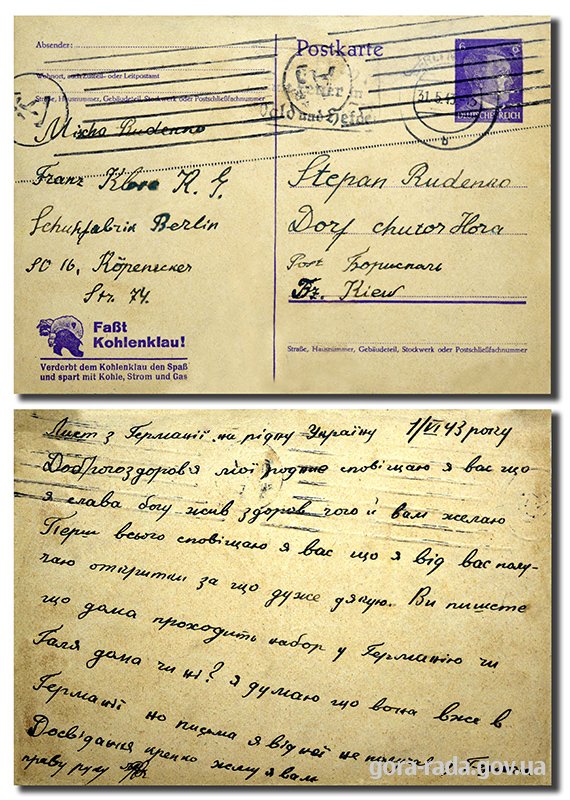 Absender:
Wohnort, auch Zustell- oder Leitpostamt
Straße, Hausnummer, Gebäudeteil, Stockwerk oder Postschließfachnummer
Mischa Rudenko
Franz K. G.
Schuhfabrik Berlin
SO 16, Köpenicker
Str. 74.
Faßt
Kohlenklau!
Verderbt dem Kohlenklau den Spaß
und spart mit Kohle, Strom und Gas
Postkarte
6 6
DEUTSCHES REICH
31.5.43
b
Feld und
Stepan Rudenko
Dorf chutor Hora
Post Бориспаль
Bz. Kiew
Straße, Hausnummer, Gebäudeteil, Stockwerk oder Postschließfachnummer
Лист з Германії на рідну Україну 1/VI 43 року
Доброгоздоровя мої родние сповіщаю я вас що
я слава богу жив здоров чого й вам желаю
Перш всього сповіщаю я вас що я від вас полу-
чаю открытки за що дуже дякую. Ви пишете
що дома проходить набор у Германію чи
Галя дома чи ні? Я думаю що вона вже в
Германії но письма я від неї не
Досвідання крепко жму я вам
праву руку
gora-rada.gov.ua